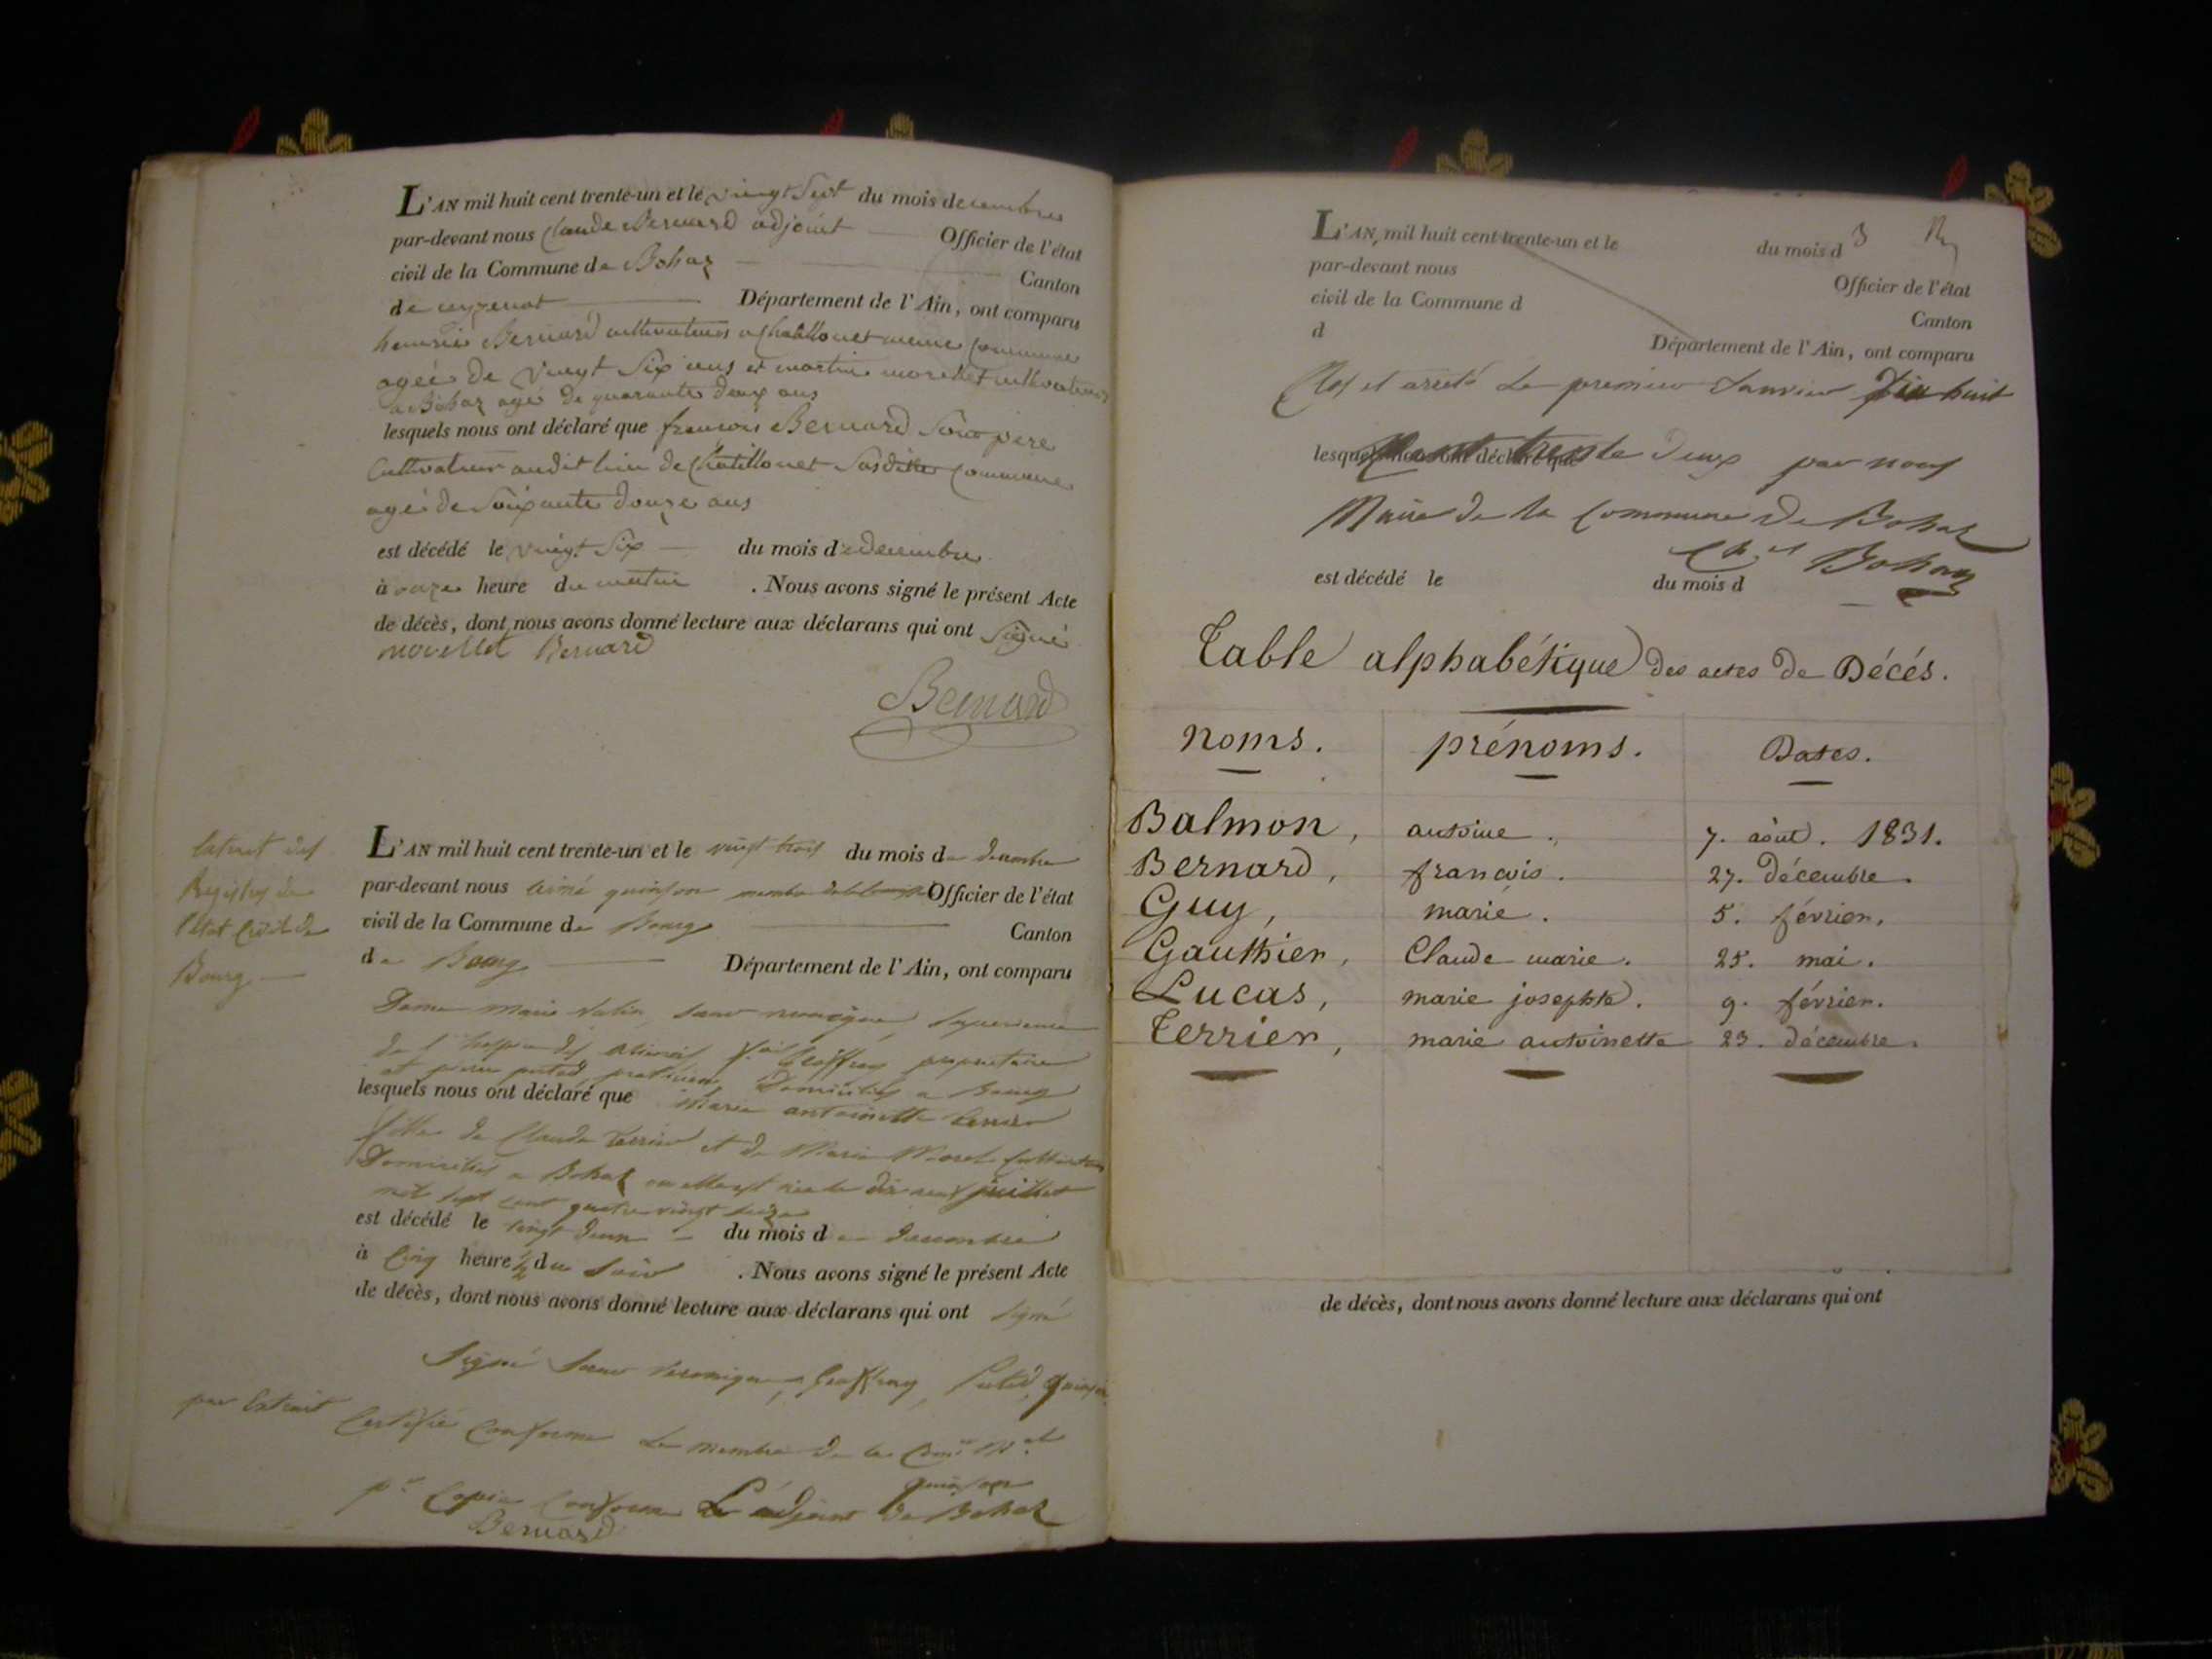 L'AN mil huit cent trente-un et le vingt Sept du mois decembre
par-devant nous Claude Bernard adjoint Officier de l'état
civil de la Commune de Bohaz Canton
de ceyzeriat Département de l'Ain, ont comparu
Bernard cultivateur a Chatillonet meme Commune
ageé de vingt Six ans et martin cultivateur
a Bohaz agé de quarante deux ans
lesquels nous ont déclaré que francois Bernard Son pere
Cultivateur audit lieu de Chatillonet Susditte Commune
agé de Soixante douze ans
est décédé le vingt Six du mois de decembre
à onze heure du matin . Nous avons signé le présent Acte
de décès, dont nous avons donné lecture aux déclarans qui ont Signé
Bernard
Bernard
Extrait des
Registres de
l'état Civil de
Bourg
L'AN mil huit cent trente-un et le vingt trois du mois de decembre
par-devant nous aimé quinson membre Officier de l'état
civil de la Commune de Bourg Canton
de Bourg Département de l'Ain, ont comparu
Dame marie Soeur Superieure
de l' des Geoffray proprietaire
et Domiciliés a Bourg
lesquels nous ont déclaré que Marie antoinette Terrier
fille de Claude Terrier et de Marie Morel Cultivateurs
Domiciliés a Bohaz ou elle est née le dix neuf juillet
mil sept cent quatre vingt seize
est décédé le vingt deux du mois de decembre
à Cinq heure ½ du Soir . Nous avons signé le présent Acte
de décès, dont nous avons donné lecture aux déclarans qui ont Signé
Signé Soeur Veronique, Geoffray, Putod, quinson
par Extrait Certifié Conforme Le membre de la Comon Male
quinson
pr Copie Conforme L'adjoint de Bohaz
Bernard
L'AN, mil huit cent trente-un et le du mois d
par-devant nous Officier de l'état
civil de la Commune d Canton
d Département de l'Ain, ont comparu
Clos et areté Le premier Janvier Dix huit
lesquels nous ont déclaré que Cent trente deux par nous
Maire de la Commune de Bohaz
Bohan
est décédé le du mois d
Table alphabétique des actes de Décés.
noms. prénoms. Dates.
Balmon, antoine. 7. aôut. 1831.
Bernard, francois. 27. décembre.
Guy, marie. 5. février.
Gauthier, Claude marie. 25. mai.
Lucas, marie josephte. 9. février.
Terrier, marie antoinette 23. décembre.
de décès, dont nous avons donné lecture aux déclarans qui ont